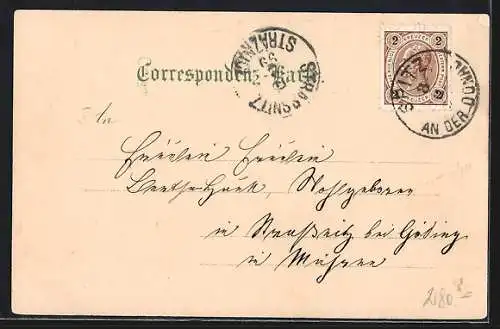 Correspondenz-Karte.
STRASSNITZ
STRAŽNICE
99
2 2
AN DER DONAU
An
Fräulein Fräulein
Wohlgeboren
in Straßnitz bei Göding
in Mähren
2180